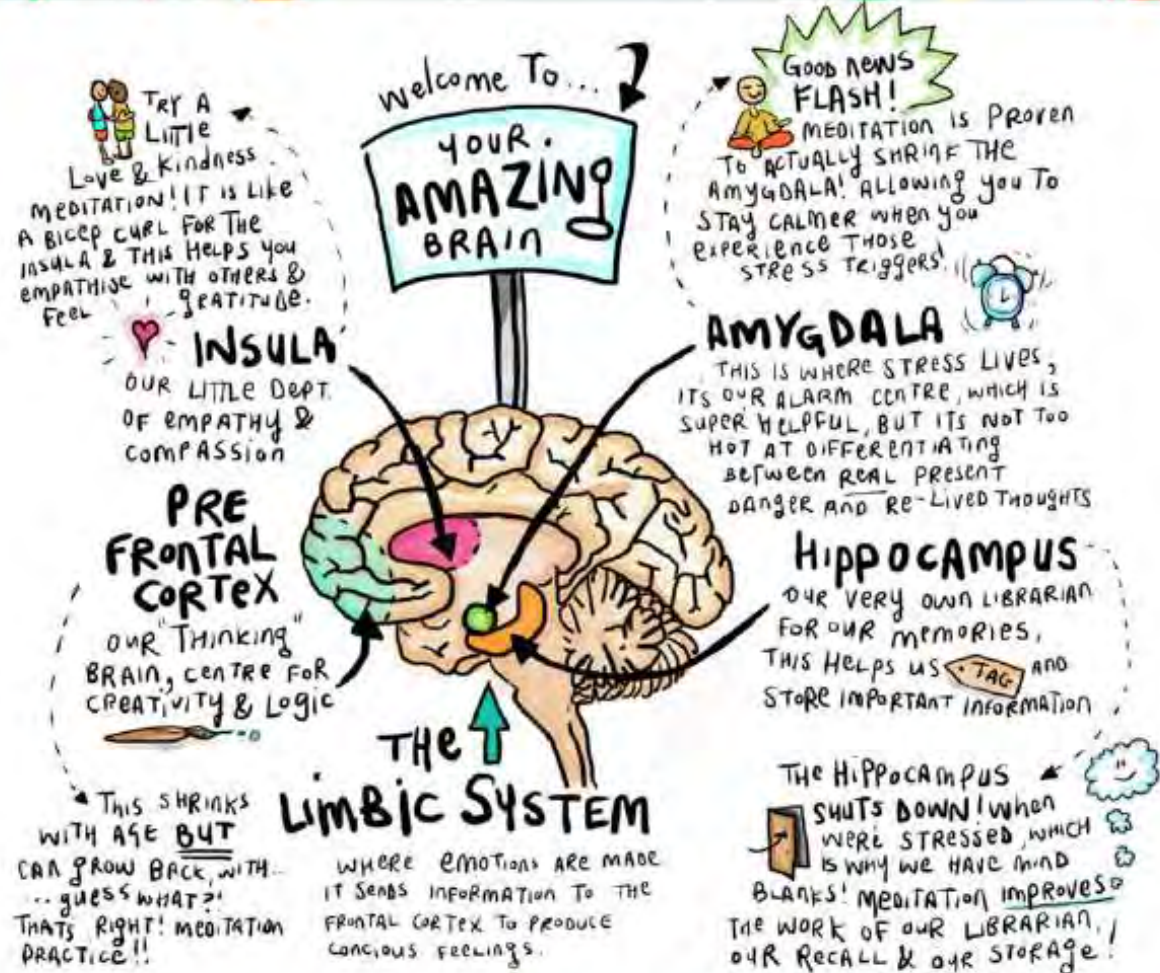 welcome To...
YOUR
AMAZING
BRAIN
TRY A
LITTLE
Love & Kindness
MEDITATION! IT IS LIKE
A BICEP CURL FOR THE
INSULA & THIS HELPS YOU
EMPATHISE WITH OTHERS &
FEEL GRATITUDE.
INSULA
OUR LITTLE DEPT.
OF EMPATHY &
COMPASSION
PRE
FRONTAL
CORTEX
OUR "THINKING"
BRAIN, CENTRE FOR
CREATIVITY & LOGIC
THIS SHRINKS
WITH AGE BUT
CAN GROW BACK, WITH...
...GUESS WHAT?!
THATS RIGHT! MEDITATION
PRACTICE!!
THE
LIMBIC SYSTEM
WHERE EMOTIONS ARE MADE
IT SENDS INFORMATION TO THE
FRONTAL CORTEX TO PRODUCE
CONCIOUS FEELINGS.
GOOD NEWS
FLASH!
MEDITATION IS PROVEN
TO ACTUALLY SHRINK THE
AMYGDALA! ALLOWING YOU TO
STAY CALMER WHEN YOU
EXPERIENCE THOSE
STRESS TRIGGERS!
AMYGDALA
THIS IS WHERE STRESS LIVES,
ITS OUR ALARM CENTRE, WHICH IS
SUPER HELPFUL, BUT ITS NOT TOO
HOT AT DIFFERENTIATING
BETWEEN REAL PRESENT
DANGER AND RE-LIVED THOUGHTS
HIPPOCAMPUS
OUR VERY OWN LIBRARIAN
FOR OUR MEMORIES,
THIS HELPS US TAG AND
STORE IMPORTANT INFORMATION
THE HIPPOCAMPUS
SHUTS DOWN! WHEN
WERE STRESSED, WHICH
IS WHY WE HAVE MIND
BLANKS! MEDITATION IMPROVES
THE WORK OF OUR LIBRARIAN,
OUR RECALL & OUR STORAGE!